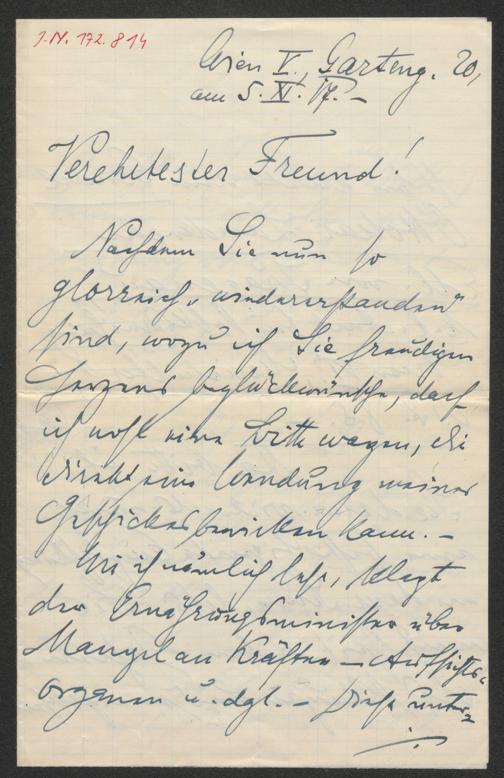 J.N. 172.814
Wien V., Garteng. 20,
am 5. XI. 17. –
Verehrtester Freund!
Nachdem Sie nun so
glorreich „wiedererstanden“
sind, wozu ich Sie freudigen
Herzens beglückwünsche, darf
ich wohl eine Bitte wagen, die
direkt eine Wendung meines
Geschickes bewirken kann. –
Wie ich nämlich lese, klagt
der Ernährungsminister über
Mangel an Kräften – Aufsichts-
organen u. dgl. – Diese unter=